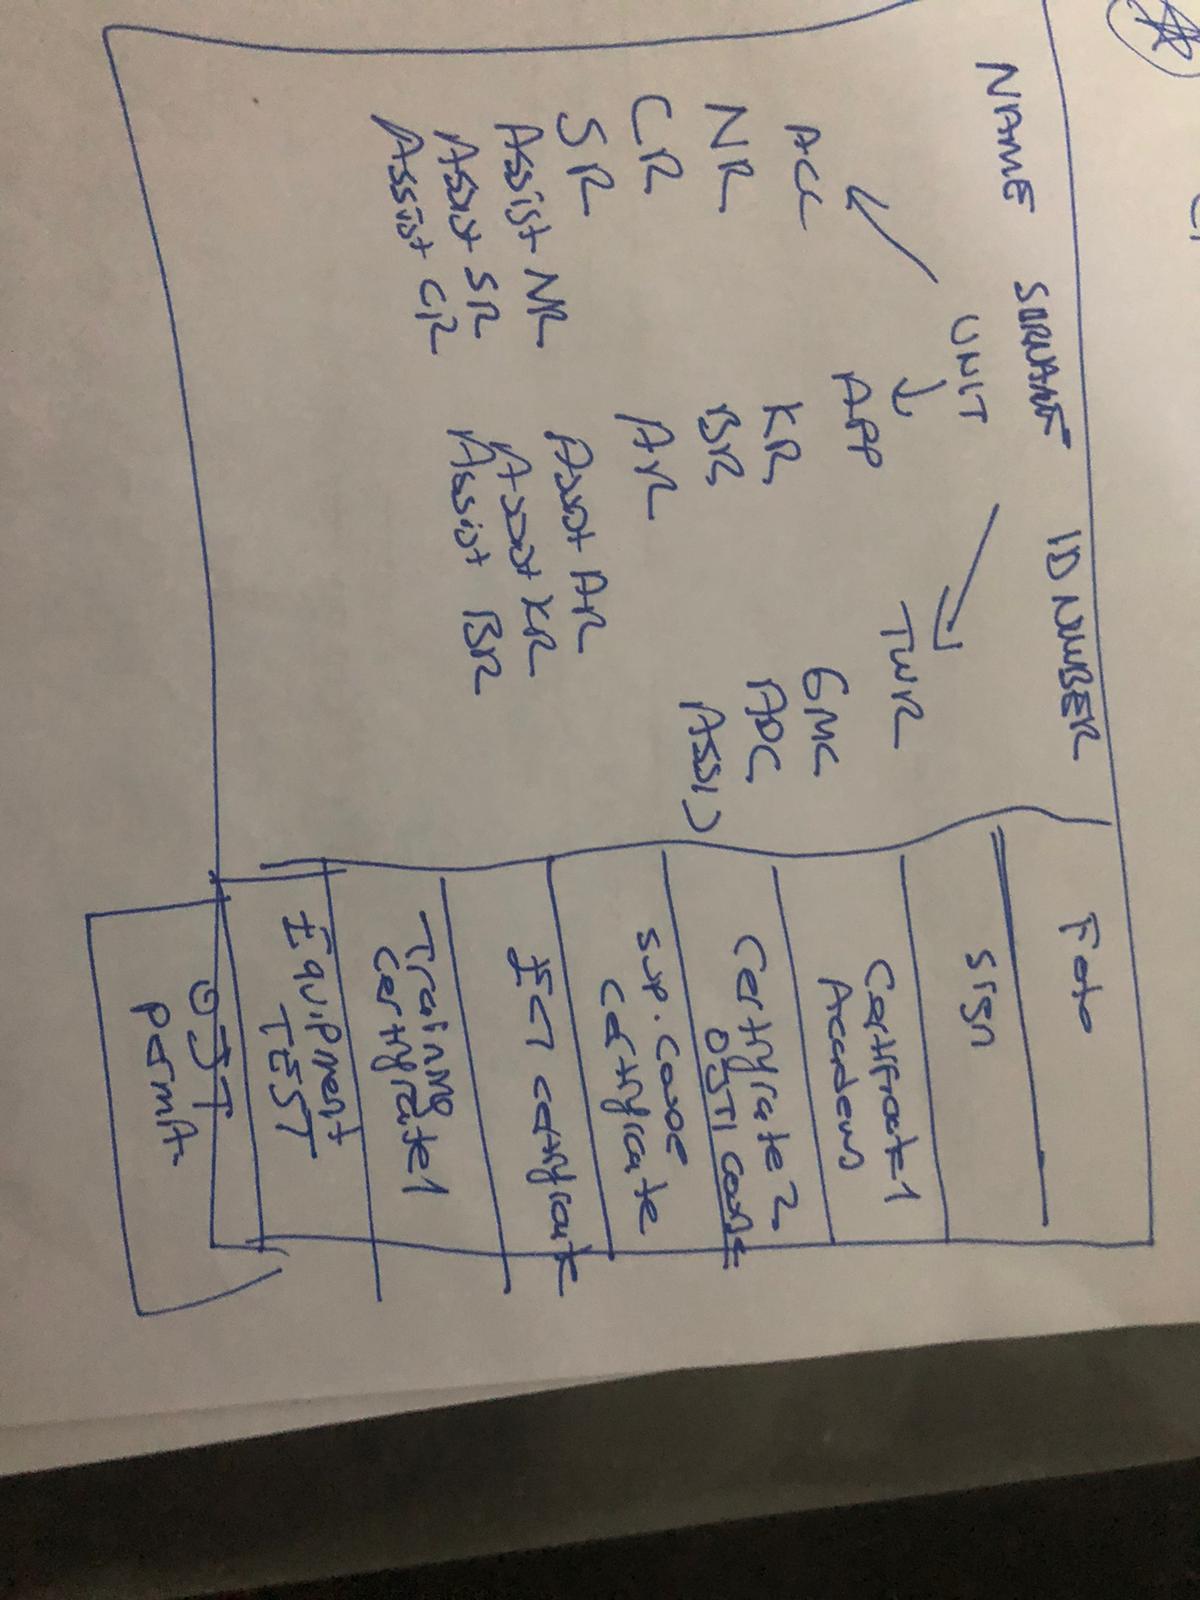 NAME SURNAME ID NUMBER
UNIT
ACC
NR
CR
SR
Assist NR
Assist SR
Assist CR
APP
KR
BR
AR
Assist AR
Assist KR
Assist BR
TWR
GMC
ADC
ASSIS
Foto
Sign
Certificate 1
Certificate 2
OJTI Course
Sup. Course
Certificate
certificate
Training
Certificate 1
Equipment
TEST
OJT
Permit